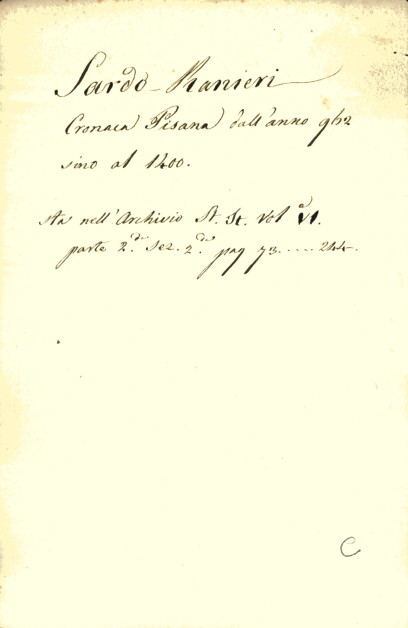 Sardo - Ranieri
Cronaca Pisana dall'anno 962
sino al 1400.
sta nell'Archivio St. It. Vol.º VI.
parte 2.da sez. 2.da pag 73.....244.
C